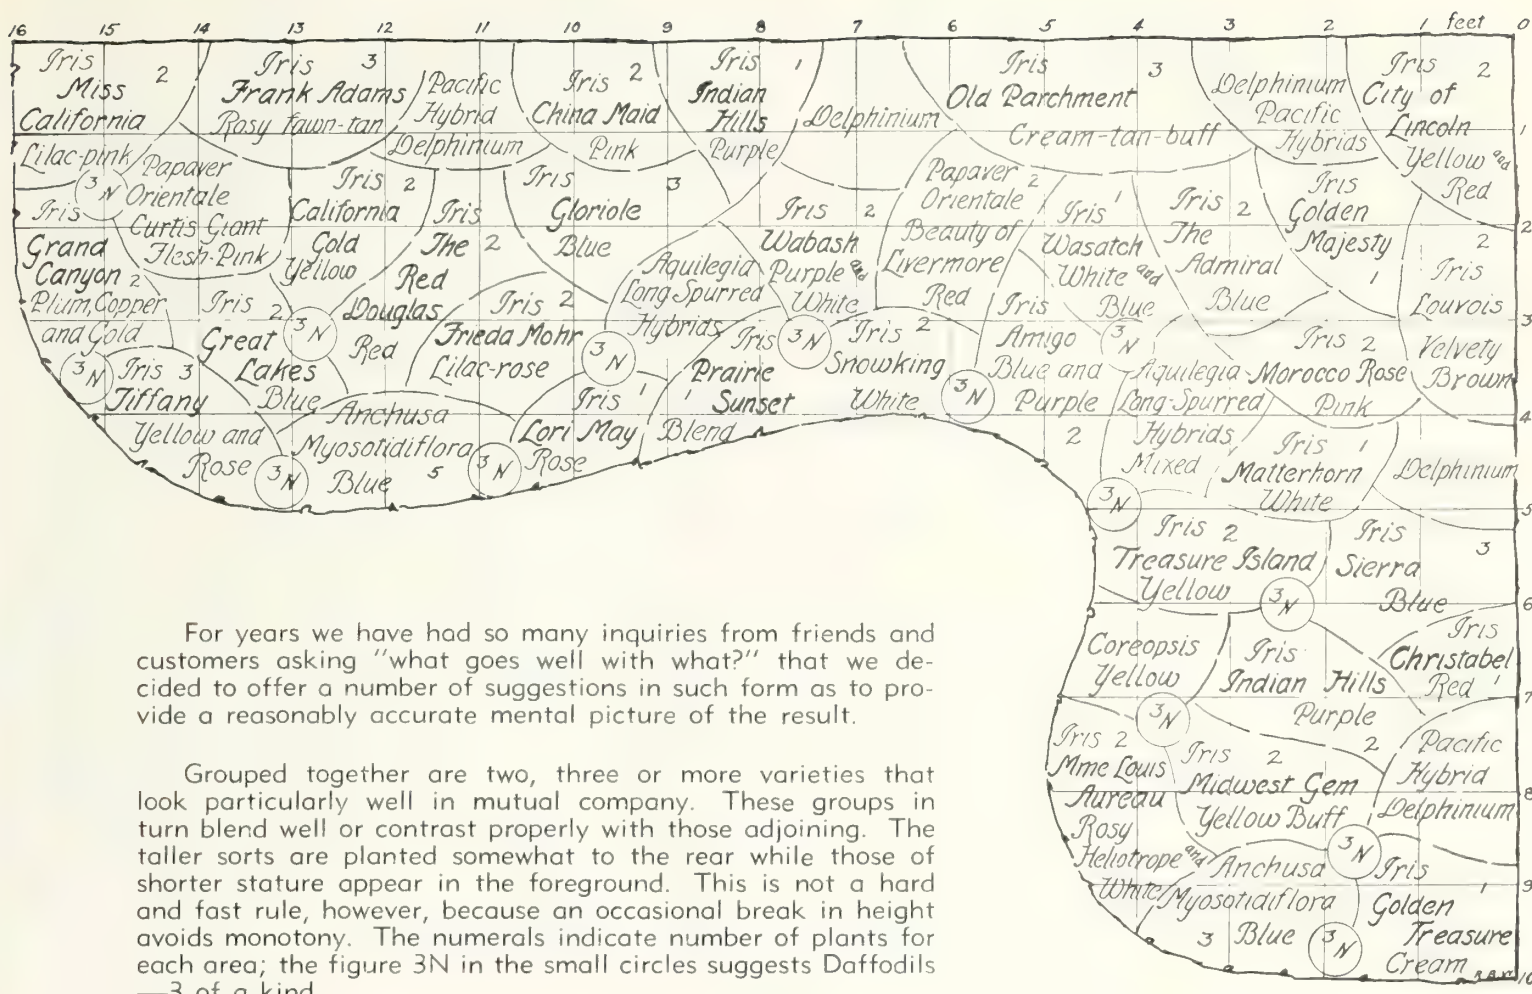 16 15 14 13 12 11 10 9 8 7 6 5 4 3 2 1 feet 0
Iris 2
Miss
California
Lilac-pink
Iris 3
Frank Adams
Rosy fawn-tan
Pacific
Hybrid
Delphinium
Iris 2
China Maid
Pink
Iris 1
Indian
Hills
Purple
Delphinium
Iris 3
Old Parchment
Cream-tan-buff
Delphinium
Pacific
Hybrids
Iris 2
City of
Lincoln
Yellow and
Red
3N
Papaver
Orientale
Curtis Giant
Flesh-Pink
Iris
Grand
Canyon 2
Plum, Copper
and Gold
Iris 2
California
Gold
Yellow
Iris
The 2
Red
Douglas
Red
Iris 3
Gloriole
Blue
Aquilegia
Long Spurred
Hybrids
Iris 2
Wabash
Purple and
White
Papaver 2
Orientale
Beauty of
Livermore
Red
Iris 1
Wasatch
White and
Blue
Iris 2
The
Admiral
Blue
Iris
Golden
Majesty
1
2
Iris
Louvois
Velvety
Brown
Iris 2
Great
Lakes
Blue
3N
Iris 2
Frieda Mohr
Lilac-rose
3N
Iris
Prairie
1 Sunset
Blend
3N
Iris 2
Snowking
White
3N
Iris
Amigo
Blue and
Purple
2
3N
Aquilegia
Long-Spurred
Hybrids
Mixed
Iris 2
Morocco Rose
Pink
3N
Iris 3
Tiffany
Yellow and
Rose
3N
Anchusa
Myosotidiflora
Blue 5
3N
Iris 1
Lori May
Rose
Iris 1
Matterhorn
White
Delphinium
3N
Iris 2
Treasure Island
Yellow
3N
Iris
Sierra 3
Blue
Coreopsis
Yellow
Iris
Indian Hills
Purple
2
Iris
Christabel
Red 1
3N
Iris 2
Mme Louis
Aureau
Rosy
Heliotrope and
White
Iris 2
Midwest Gem
Yellow Buff
Pacific
Hybrid
Delphinium
3N
Anchusa
Myosotidiflora
3 Blue
3N
Iris
1
Golden
Treasure
Cream
1
2
3
4
5
6
7
8
9
10
For years we have had so many inquiries from friends and
customers asking "what goes well with what?" that we de-
cided to offer a number of suggestions in such form as to pro-
vide a reasonably accurate mental picture of the result.
Grouped together are two, three or more varieties that
look particularly well in mutual company. These groups in
turn blend well or contrast properly with those adjoining. The
taller sorts are planted somewhat to the rear while those of
shorter stature appear in the foreground. This is not a hard
and fast rule, however, because an occasional break in height
avoids monotony. The numerals indicate number of plants for
each area; the figure 3N in the small circles suggests Daffodils
—3 of a kind.